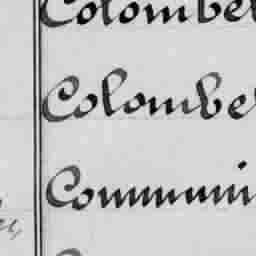 Colombel
Colombe
Communi